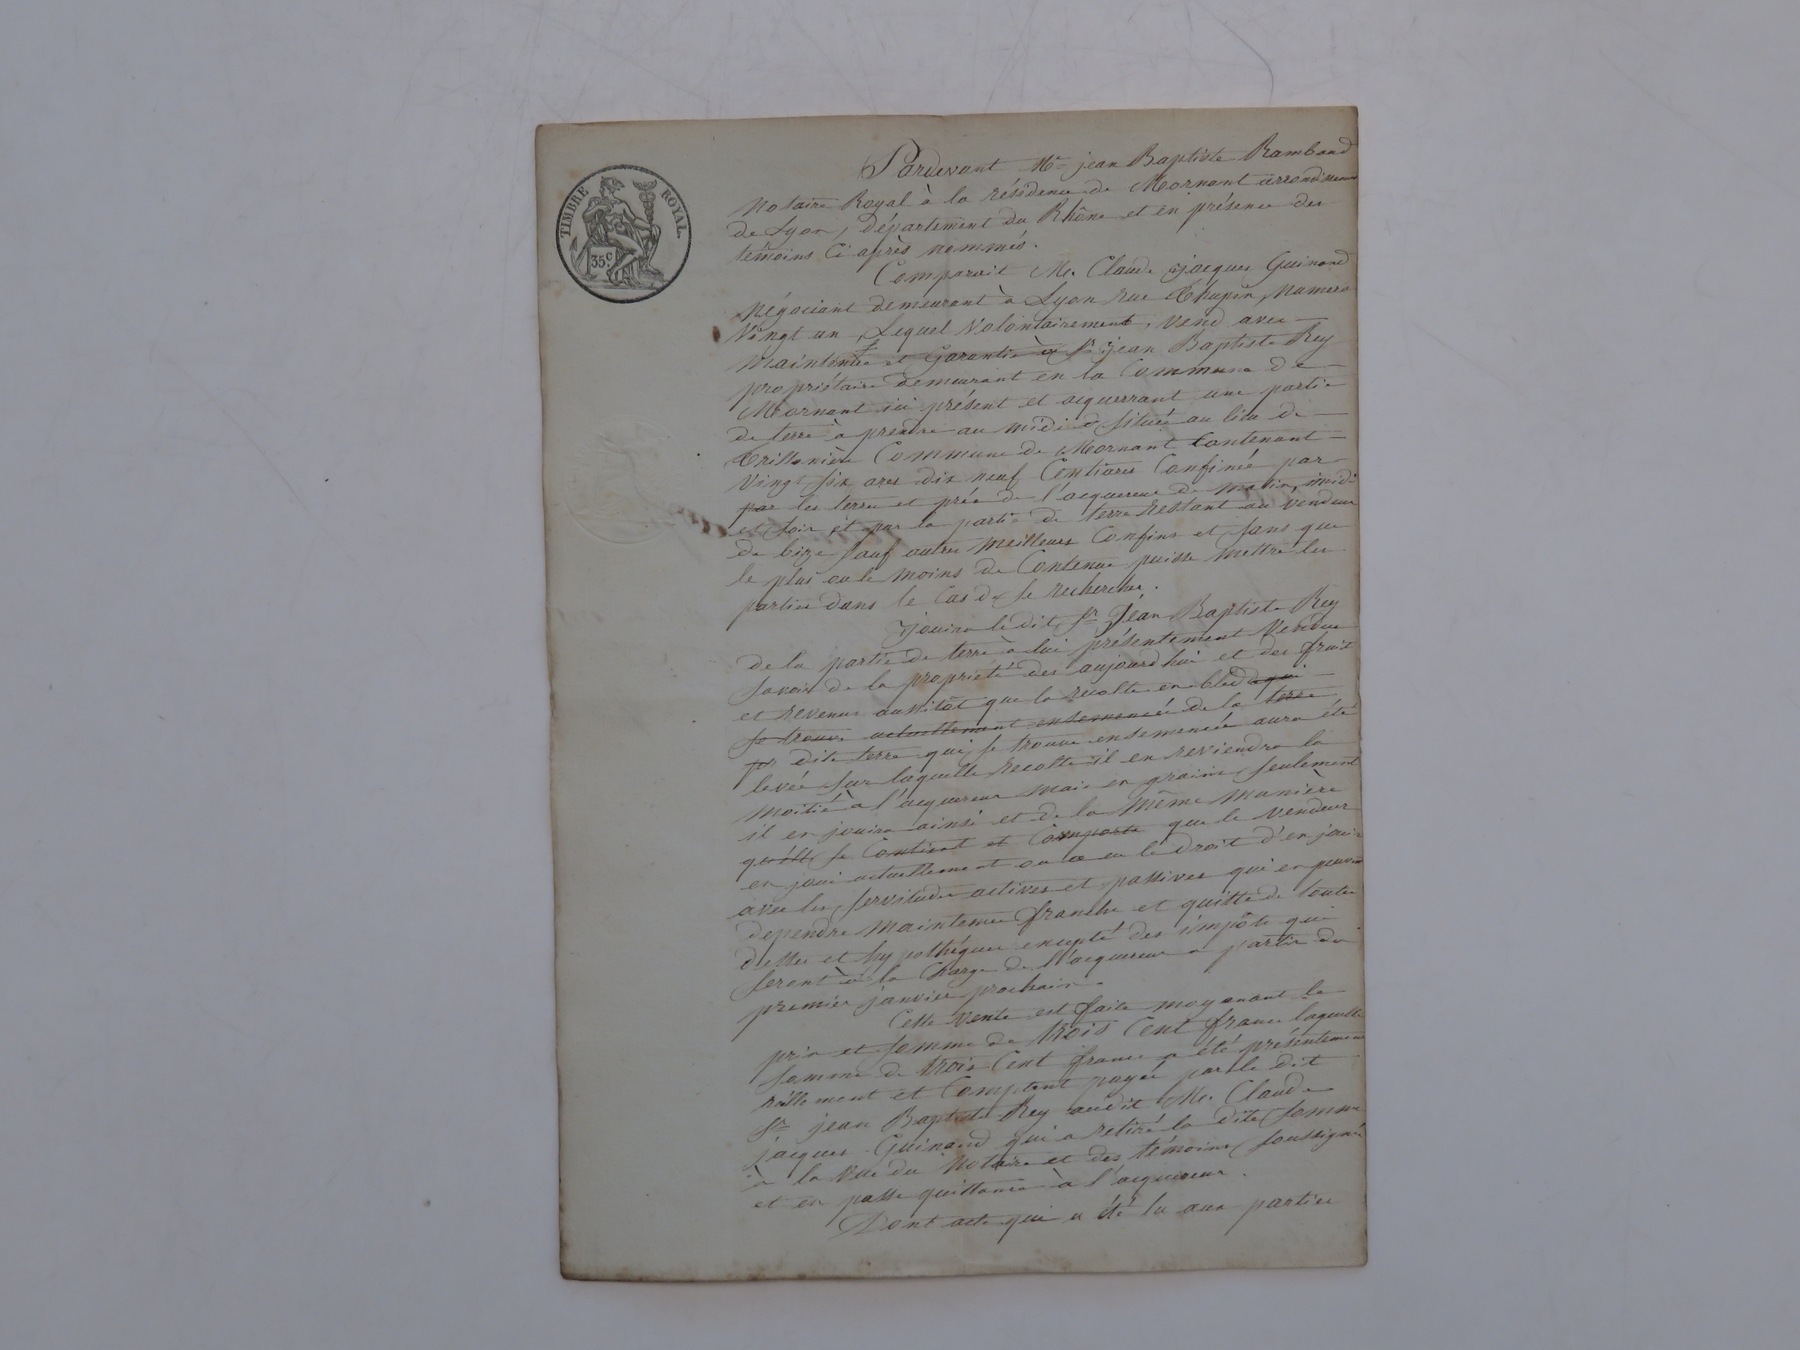 TIMBRE ROYAL.
35c.
Pardevant Me jean Baptiste Rambaud
Notaire Royal à la résidence de Mornant arrondissement
de Lyon, département du Rhône et en présence des
témoins Ci après nommés.
Comparait M. Claude jacques Guinand
Négociant demeurant à Lyon rue Thupin, Numero
Vingt un, Lequel Volontairement, vend avec
Maintenue et Garantie à Sr jean Baptiste Rey
propriétaire demeurant en la Commune de
Mornant ici présent et acquerrant une partie
de terre à prendre au midi située au lieu de
Commune de Mornant Contenant
Vingt six ares dix neuf Centiares Confinée par
par les terre et prée de l'acquereur de matin, midi
et soir et par la partie de terre Restant au vendeur
de bize sauf autres Meilleurs Confins et sans que
le plus ou le Moins de Contenue puisse Mettre les
parties dans le Cas de se rechercher.
Jouira le dit Sr Jean Baptiste Rey
de la partie de terre à lui présentement Vendue
savoir de la propriété des aujourd'hui et des fruit
et revenus aussitot que la récolte en bled qui
se trouve actuellement ensemencée de la terre
dite terre qui se trouve ensemencée aura été
levée sur laquelle récolte il en reviendra la
Moitié à l'acquereur Mais en grains seulement
il en jouira ainsi et de la Même Manière
qu'elle se Contient et Comporte que le Vendeur
en joui actuellement ou a eu le Droit d'en jouir
avec les servitudes actives et passives qui en peuvent
dependre Maintenue franche et quitte de toutes
dettes et hypothéques excepté des impôts qui
seront à la Charge de l'acquereur a partir du
premier janvier prochain.
Cette Vente est faite moyenant le
prix et somme de trois Cent francs laquelle
somme de trois Cent francs a été présentement
réellement et Comptant payée par le dit
Sr jean Baptiste Rey audit M. Claude
jacques Guinand qui a retiré la dite somme
à la Vue du Notaire et des témoins soussignés
et en passe quittance à l'acquereur.
Dont acte qui a été lu aux parties